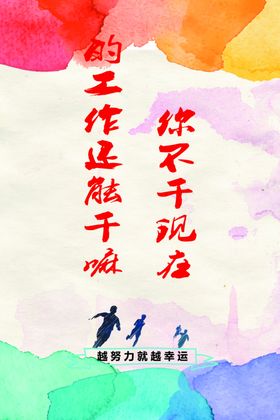 你不干现在
的工作还能干嘛
越努力就越幸运